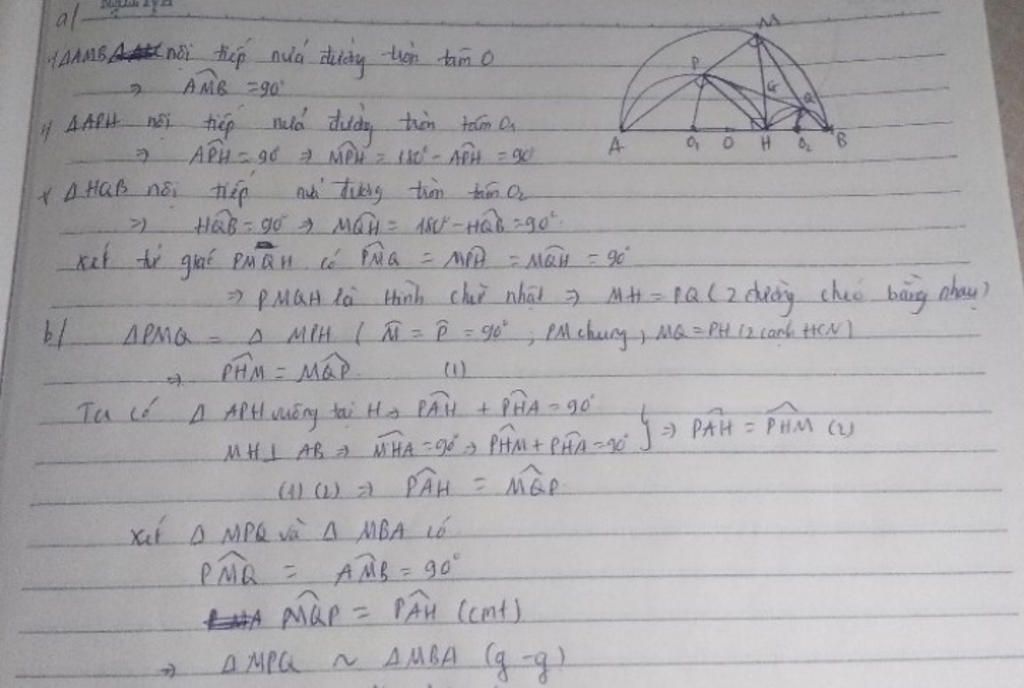 a/
+/ ΔAMB nội tiếp nửa đường tròn tâm O
⇒ AMB = 90°
+/ ΔAPH nội tiếp nửa đường tròn tâm O₁
⇒ APH = 90° ⇒ MPH = 180° - APH = 90°
+ ΔHQB nội tiếp nửa đường tròn tâm O₂
⇒ HQB = 90° ⇒ MQH = 180° - HQB = 90°
Xét tứ giác PMQH có PMQ = MPH = MQH = 90°
⇒ PMQH là hình chữ nhật ⇒ MH = PQ (2 đường chéo bằng nhau)
b/ ΔPMQ = Δ MPH ( M = P = 90° ; PM chung, MQ = PH (2 cạnh HCN)
⇒ PHM = MQP (1)
Ta có Δ APH vuông tại H ⇒ PAH + PHA = 90°
MH ⊥ AB ⇒ MHA = 90° ⇒ PHM + PHA = 90° } ⇒ PAH = PHM (2)
(1) (2) ⇒ PAH = MQP
Xét Δ MPQ và Δ MBA có
PMQ = AMB = 90°
MQP = PAH (cmt)
⇒ ΔMPQ ~ ΔMBA (g-g)
M
P
G
Q
A O₁ O H O₂ B